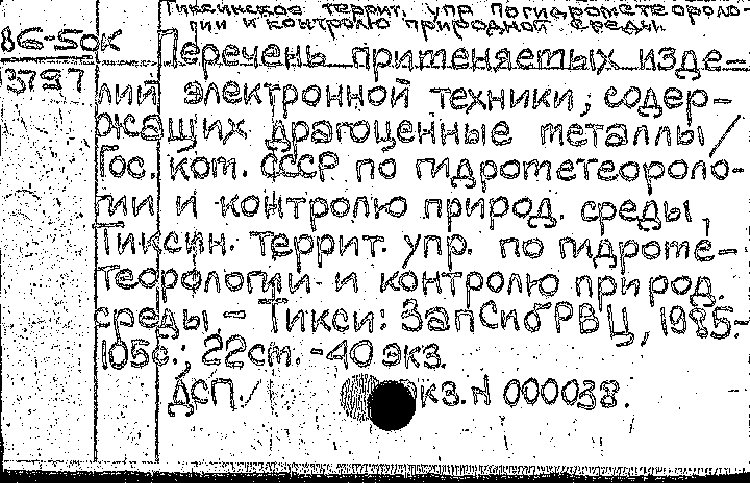 Тиксинское террит. упр. по гидрометеороло-
гии и контролю природной среды.
86-50к Перечень применяемых изде-
3797 лий электронной техники, содер-
жащих драгоценные металлы /
Гос. ком. СССР по гидрометеороло-
гии и контролю природ. среды,
Тиксин. террит. упр. по гидроме-
теорологии и контролю природ.
среды. - Тикси: ЗапСибРВЦ, 1985.-
105с.; 22см. - 40 экз.
ДСП / экз. N 000038.